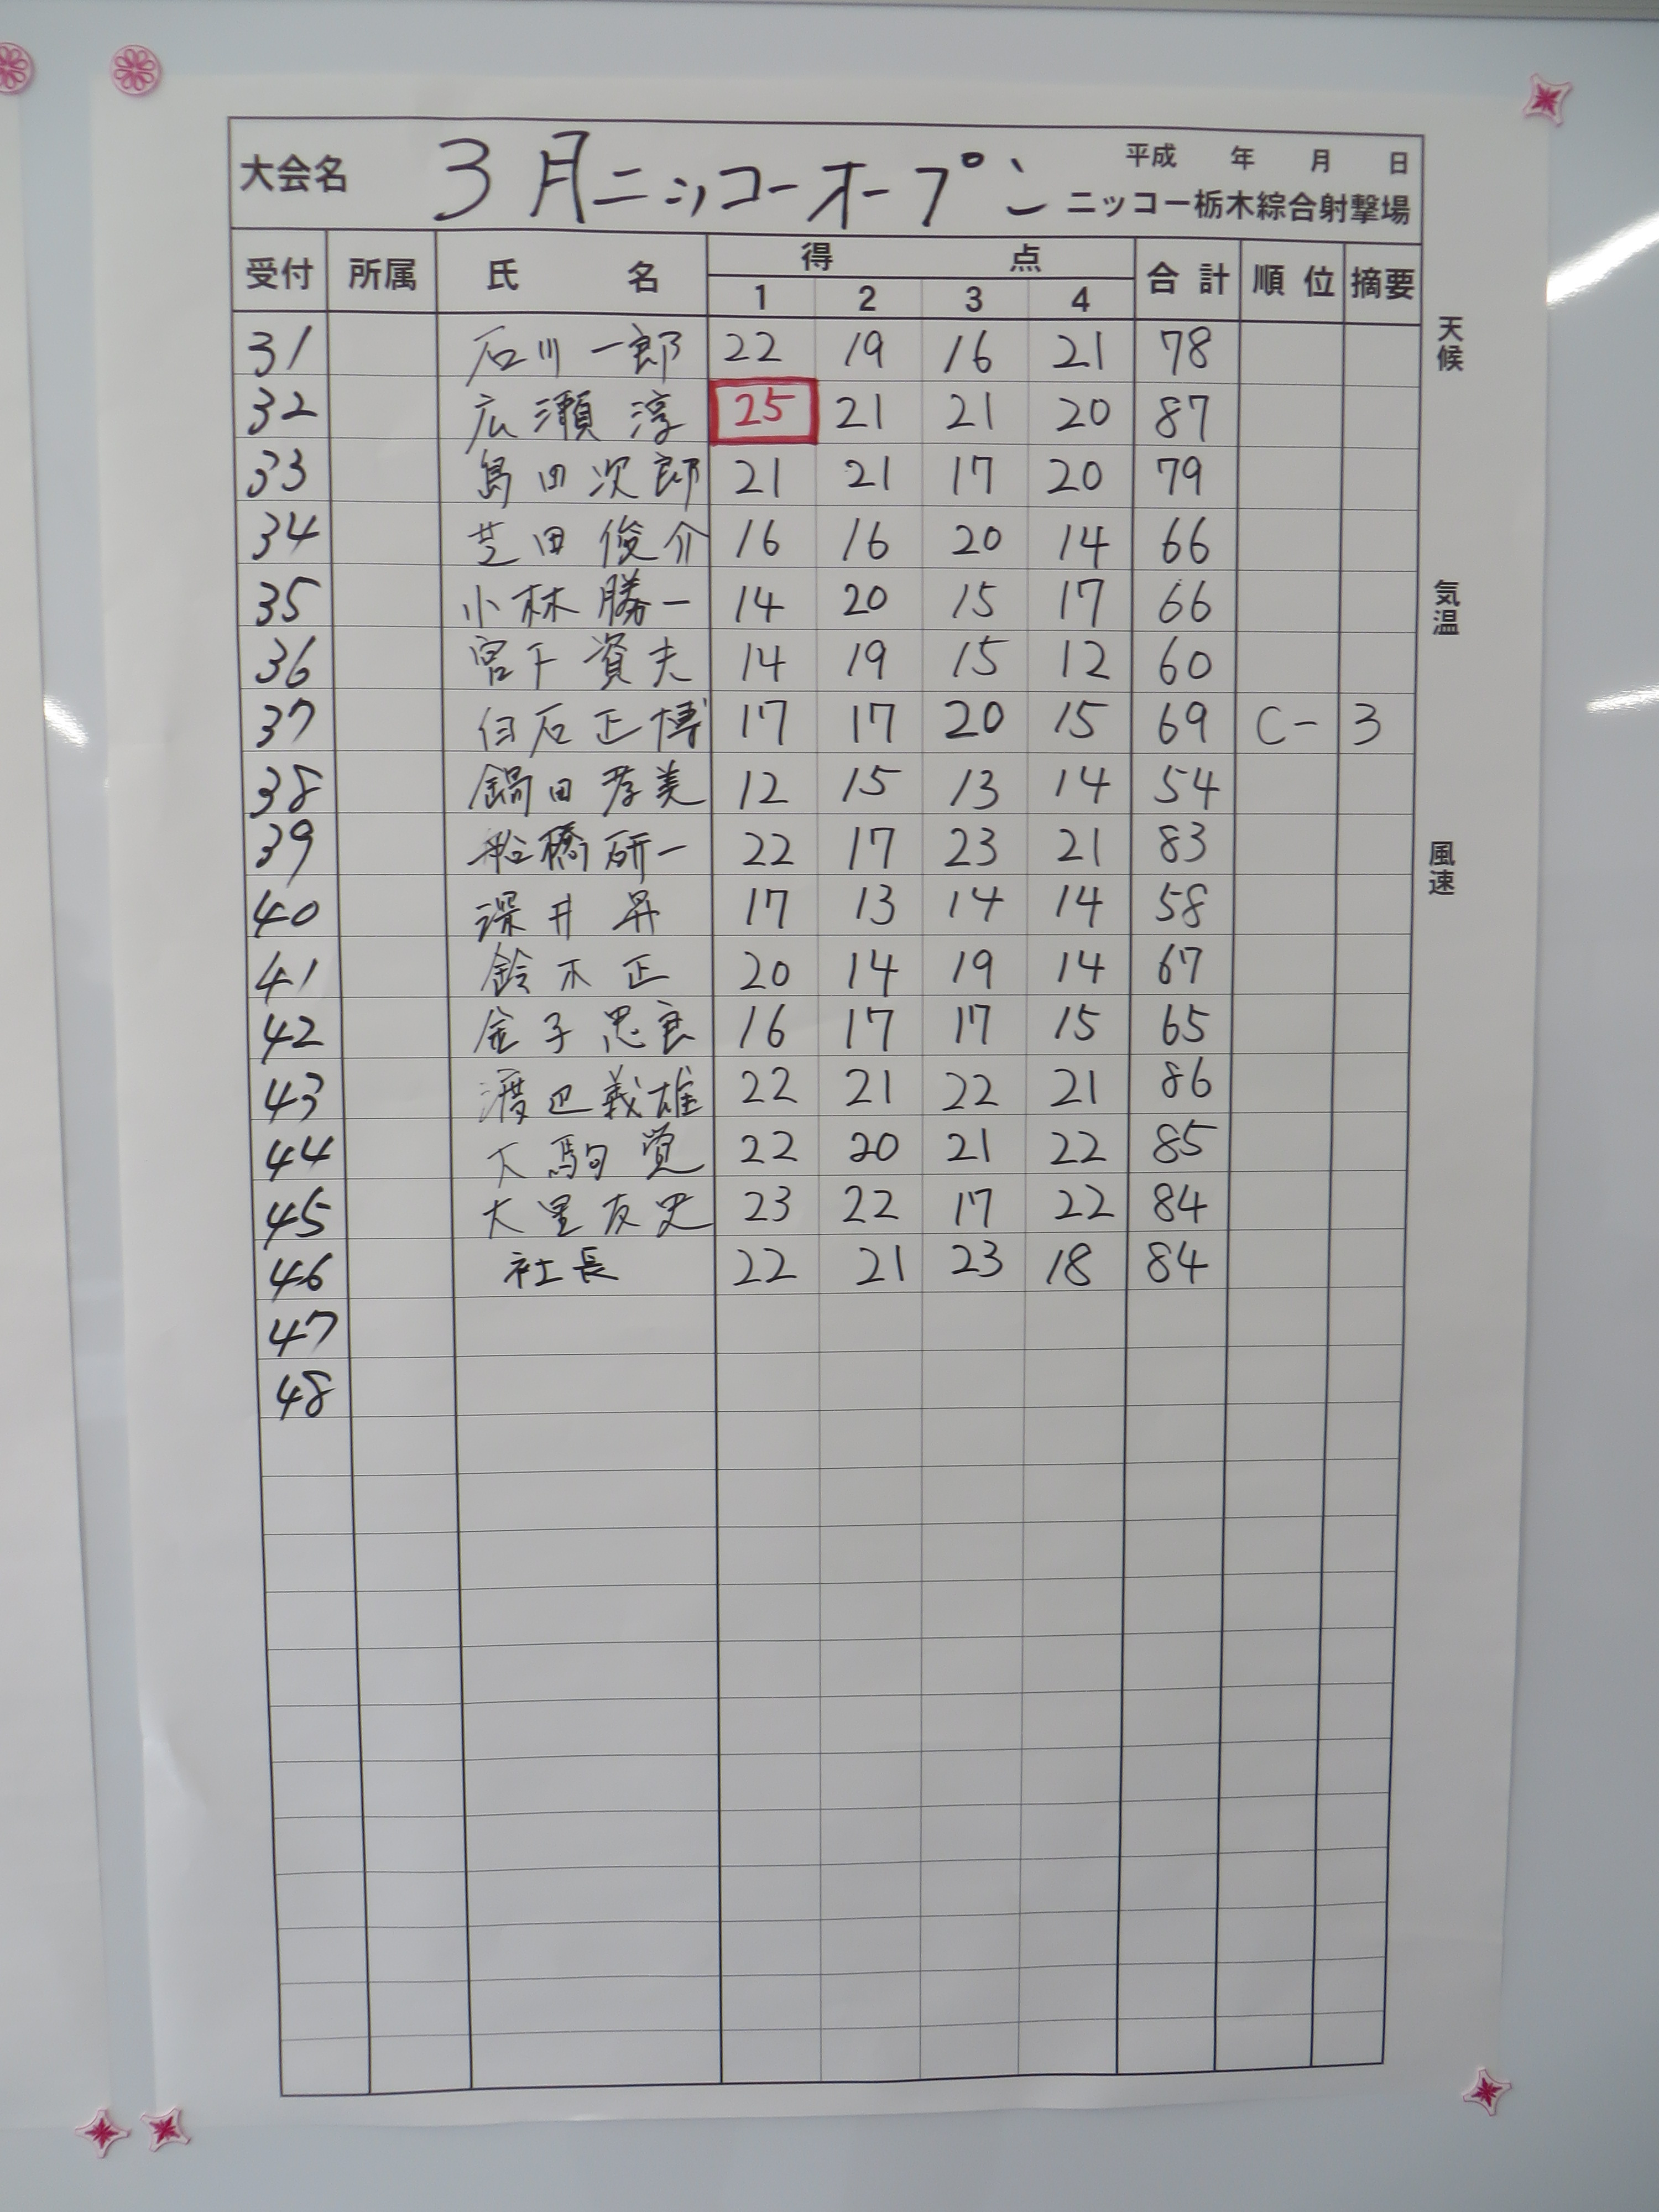 大会名 3月ニッコーオープン 平成 年 月 日
ニッコー栃木綜合射撃場
受付 所属 氏 名 得 点 合計 順位 摘要
1 2 3 4
31 石川一郎 22 19 16 21 78
32 広瀬淳 25 21 21 20 87
33 島田次郎 21 21 17 20 79
34 芝田俊介 16 16 20 14 66
35 小林勝一 14 20 15 17 66
36 宮下資夫 14 19 15 12 60
37 白石正博 17 17 20 15 69 C- 3
38 鍋田孝美 12 15 13 14 54
39 船橋研一 22 17 23 21 83
40 深井昇 17 13 14 14 58
41 鈴木正 20 14 19 14 67
42 金子忠良 16 17 17 15 65
43 渡辺義雄 22 21 22 21 86
44 大駒覚 22 20 21 22 85
45 大里友史 23 22 17 22 84
46 社長 22 21 23 18 84
47
48
天候
気温
風速